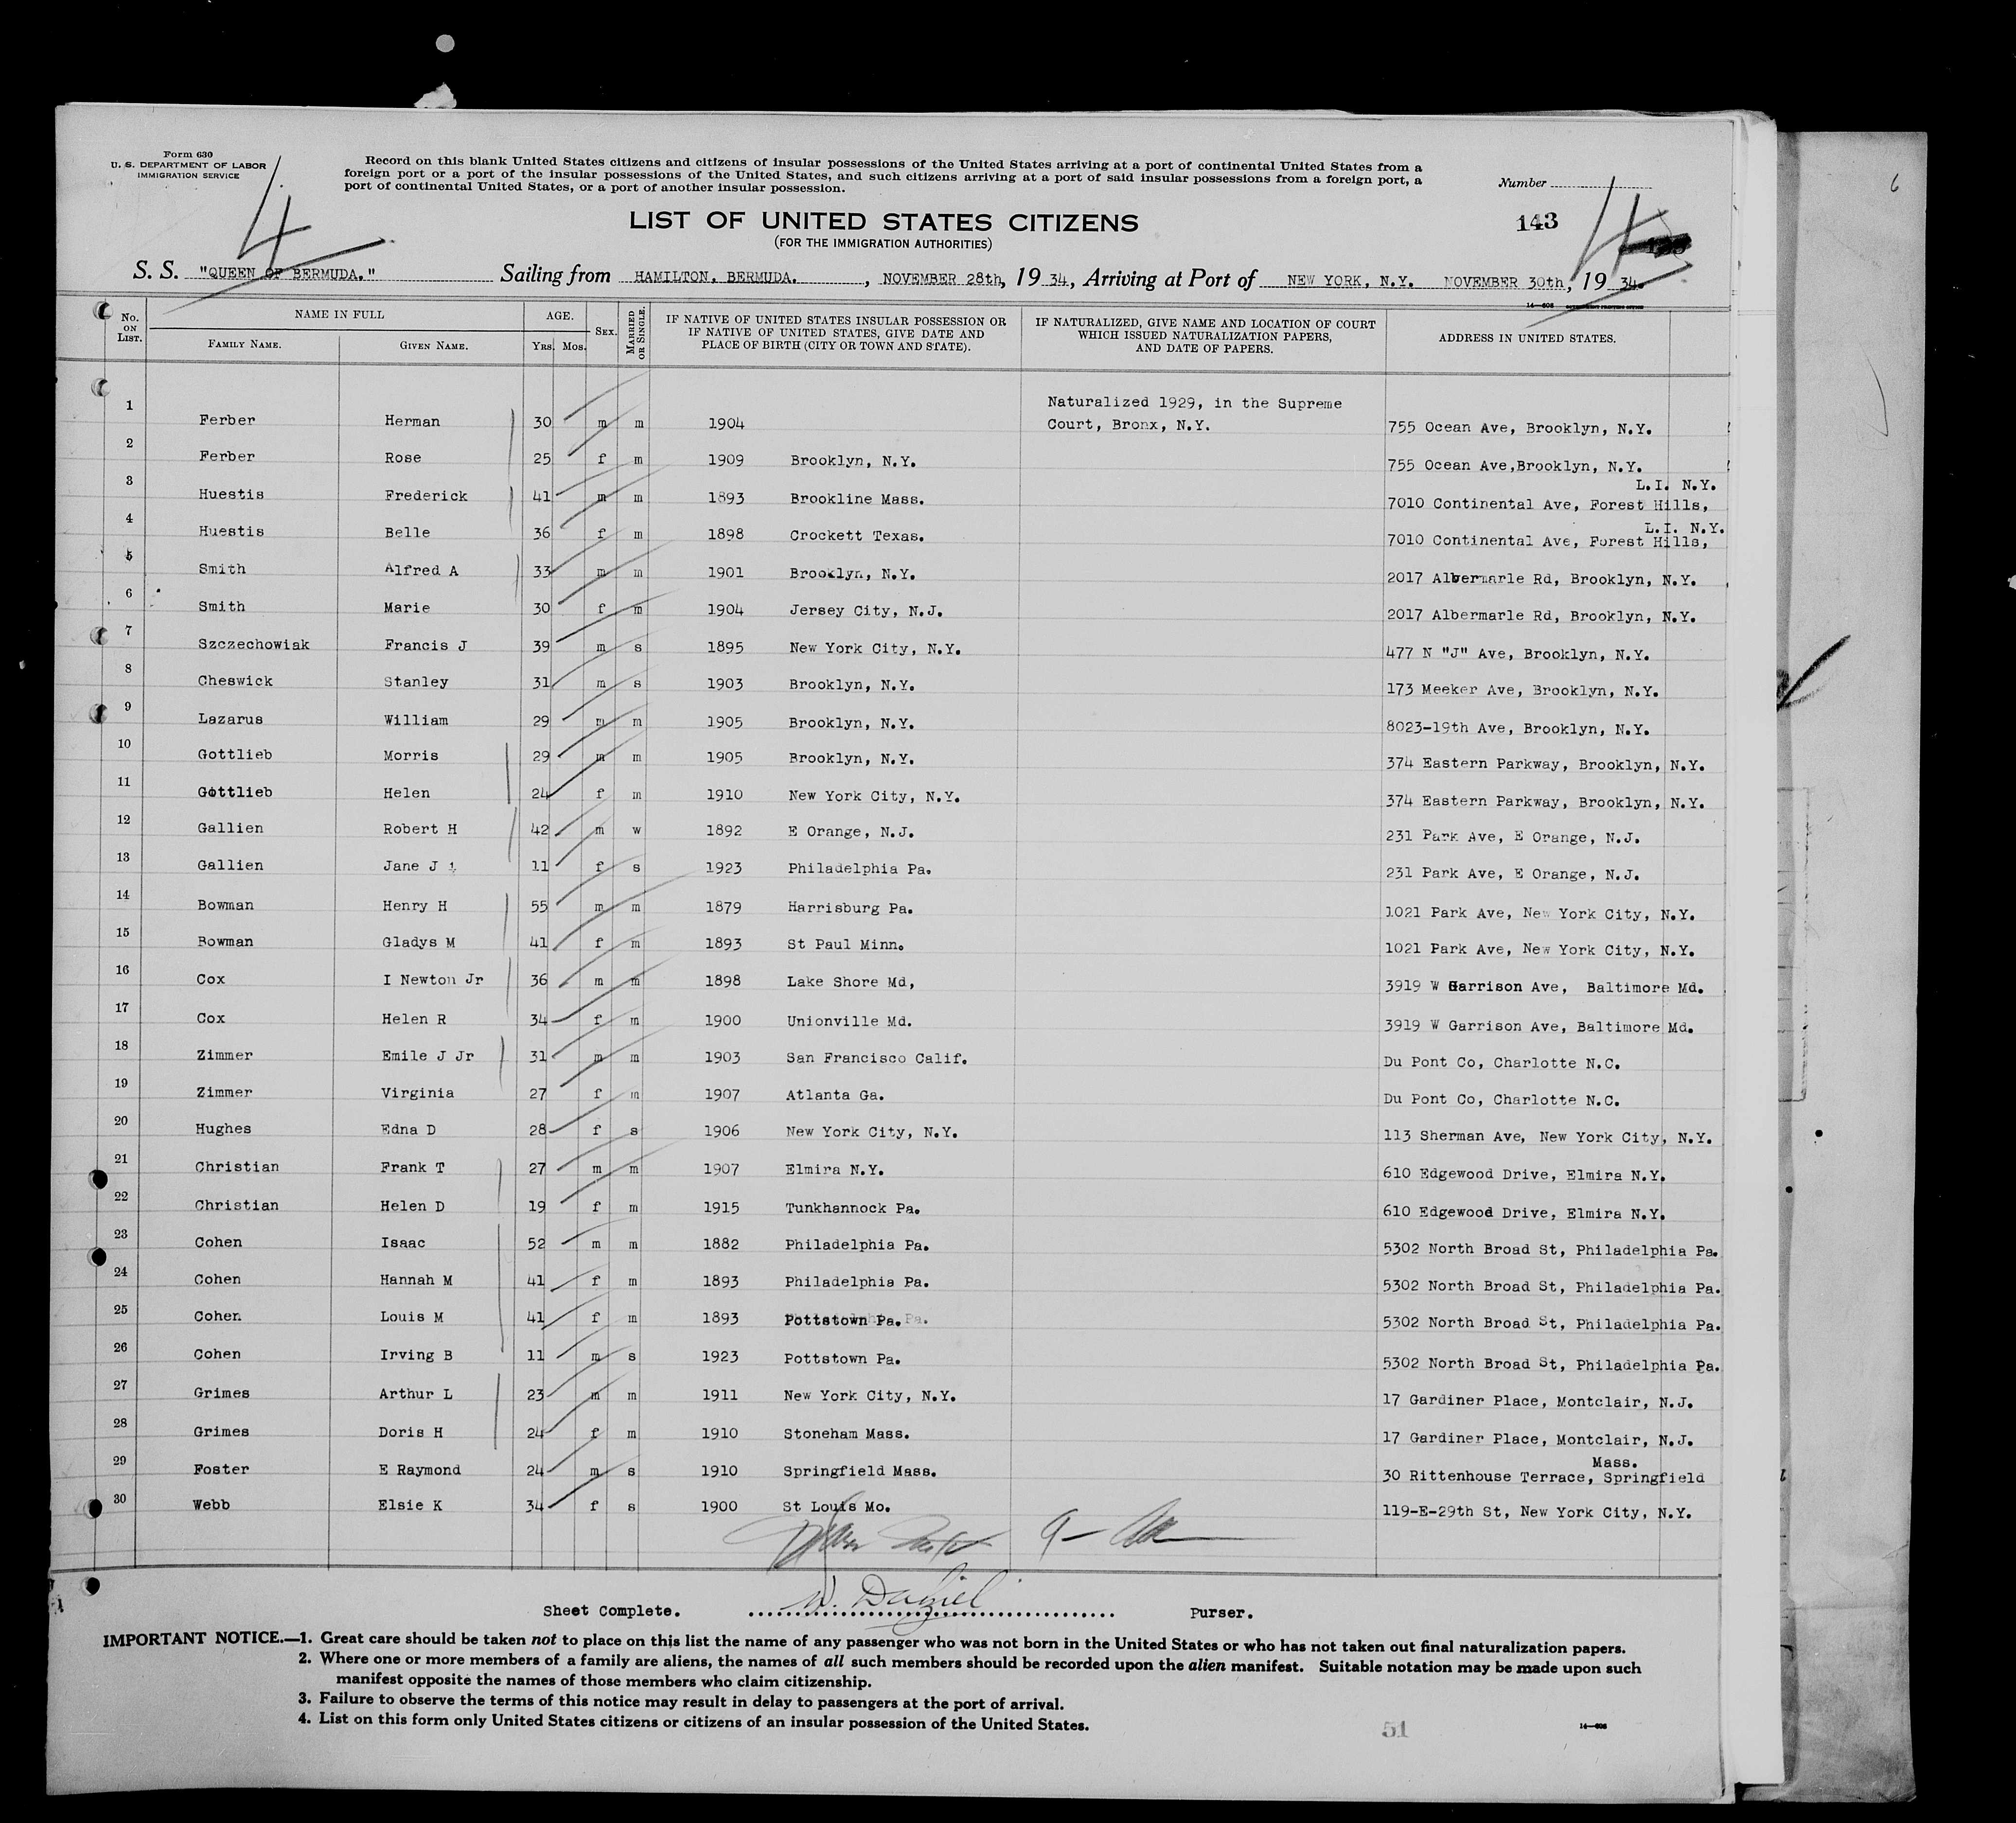 Form 630
U. S. DEPARTMENT OF LABOR
IMMIGRATION SERVICE
4
Record on this blank United States citizens and citizens of insular possessions of the United States arriving at a port of continental United States from a
foreign port or a port of the insular possessions of the United States, and such citizens arriving at a port of said insular possessions from a foreign port, a
port of continental United States, or a port of another insular possession.
Number
LIST OF UNITED STATES CITIZENS
143
4
(FOR THE IMMIGRATION AUTHORITIES)
S. S. "QUEEN OF BERMUDA." Sailing from HAMILTON, BERMUDA. , NOVEMBER 28th, 19 34, Arriving at Port of NEW YORK, N.Y. NOVEMBER 30th, 19 34.
No. ON LIST. NAME IN FULL FAMILY NAME. GIVEN NAME. AGE. YRS. MOS. SEX. MARRIED OR SINGLE. IF NATIVE OF UNITED STATES INSULAR POSSESSION OR IF NATIVE OF UNITED STATES, GIVE DATE AND PLACE OF BIRTH (CITY OR TOWN AND STATE). IF NATURALIZED, GIVE NAME AND LOCATION OF COURT WHICH ISSUED NATURALIZATION PAPERS, AND DATE OF PAPERS. ADDRESS IN UNITED STATES.
1 Ferber Herman 30 m m 1904 Naturalized 1929, in the Supreme Court, Bronx, N.Y. 755 Ocean Ave, Brooklyn, N.Y.
2 Ferber Rose 25 f m 1909 Brooklyn, N.Y. 755 Ocean Ave,Brooklyn, N.Y.
3 Huestis Frederick 41 m m 1893 Brookline Mass. 7010 Continental Ave, Forest Hills, L.I. N.Y.
4 Huestis Belle 36 f m 1898 Crockett Texas. 7010 Continental Ave, Forest Hills, L.I. N.Y.
5 Smith Alfred A 33 m m 1901 Brooklyn, N.Y. 2017 Albermarle Rd, Brooklyn, N.Y.
6 Smith Marie 30 f m 1904 Jersey City, N.J. 2017 Albermarle Rd, Brooklyn, N.Y.
7 Szczechowiak Francis J 39 m s 1895 New York City, N.Y. 477 N "J" Ave, Brooklyn, N.Y.
8 Cheswick Stanley 31 m s 1903 Brooklyn, N.Y. 173 Meeker Ave, Brooklyn, N.Y.
9 Lazarus William 29 m m 1905 Brooklyn, N.Y. 8023-19th Ave, Brooklyn, N.Y.
10 Gottlieb Morris 29 m m 1905 Brooklyn, N.Y. 374 Eastern Parkway, Brooklyn, N.Y.
11 Gottlieb Helen 24 f m 1910 New York City, N.Y. 374 Eastern Parkway, Brooklyn, N.Y.
12 Gallien Robert H 42 m w 1892 E Orange, N.J. 231 Park Ave, E Orange, N.J.
13 Gallien Jane J 11 f s 1923 Philadelphia Pa. 231 Park Ave, E Orange, N.J.
14 Bowman Henry H 55 m m 1879 Harrisburg Pa. 1021 Park Ave, New York City, N.Y.
15 Bowman Gladys M 41 f m 1893 St Paul Minn. 1021 Park Ave, New York City, N.Y.
16 Cox I Newton Jr 36 m m 1898 Lake Shore Md, 3919 W Garrison Ave, Baltimore Md.
17 Cox Helen R 34 f m 1900 Unionville Md. 3919 W Garrison Ave, Baltimore Md.
18 Zimmer Emile J Jr 31 m m 1903 San Francisco Calif. Du Pont Co, Charlotte N.C.
19 Zimmer Virginia 27 f m 1907 Atlanta Ga. Du Pont Co, Charlotte N.C.
20 Hughes Edna D 28 f s 1906 New York City, N.Y. 113 Sherman Ave, New York City, N.Y.
21 Christian Frank T 27 m m 1907 Elmira N.Y. 610 Edgewood Drive, Elmira N.Y.
22 Christian Helen D 19 f m 1915 Tunkhannock Pa. 610 Edgewood Drive, Elmira N.Y.
23 Cohen Isaac 52 m m 1882 Philadelphia Pa. 5302 North Broad St, Philadelphia Pa.
24 Cohen Hannah M 41 f m 1893 Philadelphia Pa. 5302 North Broad St, Philadelphia Pa.
25 Cohen Louis M 41 f m 1893 Pottstown Pa. 5302 North Broad St, Philadelphia Pa.
26 Cohen Irving B 11 m s 1923 Pottstown Pa. 5302 North Broad St, Philadelphia Pa.
27 Grimes Arthur L 23 m m 1911 New York City, N.Y. 17 Gardiner Place, Montclair, N.J.
28 Grimes Doris H 24 f m 1910 Stoneham Mass. 17 Gardiner Place, Montclair, N.J.
29 Foster E Raymond 24 m s 1910 Springfield Mass. 30 Rittenhouse Terrace, Springfield Mass.
30 Webb Elsie K 34 f s 1900 St Louis Mo. 119-E-29th St, New York City, N.Y.
Sheet Complete. W. Dalziel Purser.
IMPORTANT NOTICE.—1. Great care should be taken not to place on this list the name of any passenger who was not born in the United States or who has not taken out final naturalization papers.
2. Where one or more members of a family are aliens, the names of all such members should be recorded upon the alien manifest. Suitable notation may be made upon such
manifest opposite the names of those members who claim citizenship.
3. Failure to observe the terms of this notice may result in delay to passengers at the port of arrival.
4. List on this form only United States citizens or citizens of an insular possession of the United States.
51
6